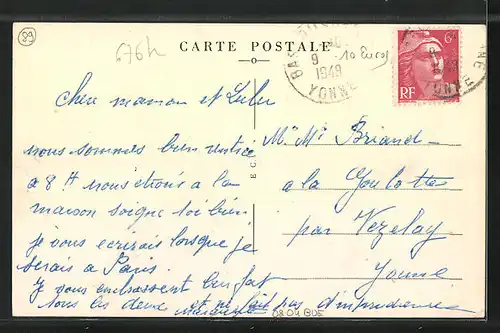 89
676h
CARTE POSTALE
10 Euros
9
1949
YONNE
6F
RF
Cher maman et Lulu
nous sommes bien rentrés
a 8H nous étions a la
maison soigne toi bien
je vous ecrirais lorsque je
serais a Paris.
Je vous embrassent bien fort
tous les deux et ne fait pas d'imprudence
Mme Mr Briand
a la Goulotte
par Vezelay
Yonne